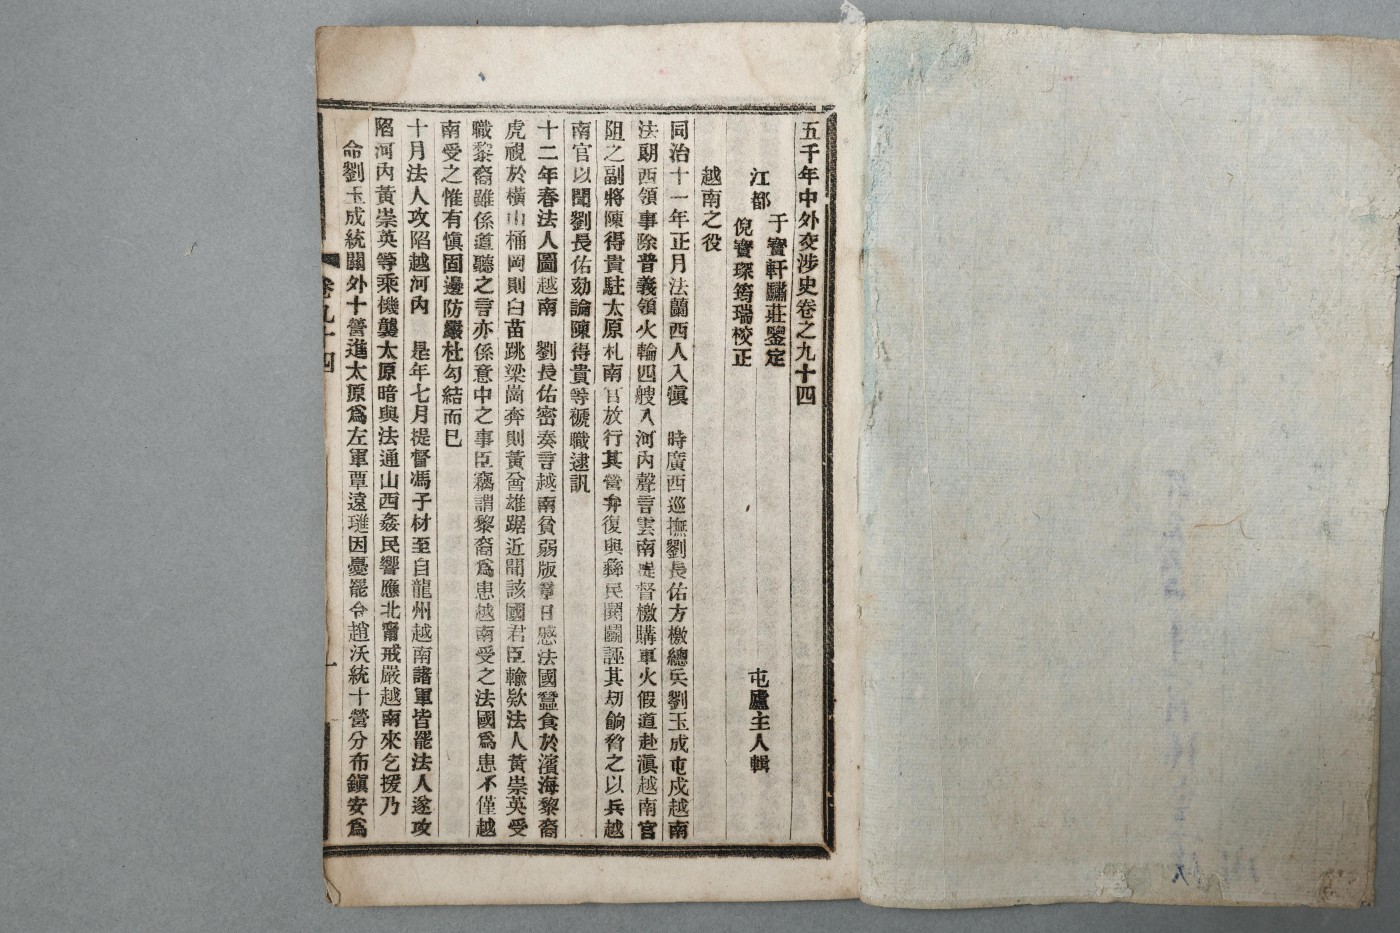 五千年中外交涉史卷之九十四
江都
于寶軒驌莊鑒定
倪寶琛筠瑞校正
屯廬主人輯
越南之役
同治十一年正月法蘭西人入滇　時廣西巡撫劉長佑方檄總兵劉玉成屯戍越南
法朝西領事除普義領火輪四艘入河內聲言雲南提督檄購軍火假道赴滇越南官
阻之副將陳得貴駐太原札南官放行其營弁復與彝民鬨鬭誣其刧餉脅之以兵越
南官以聞劉長佑劾論陳得貴等褫職逮訊
十二年春法人圖越南　劉長佑密奏言越南貧弱版章日蹙法國蠶食於濱海黎裔
虎視於橫山桶岡則白苗跳梁崗奔則黃酋雄踞近聞該國君臣輸欵法人黃崇英受
職黎裔雖係道聽之言亦係意中之事臣竊謂黎裔為患越南受之法國為患不僅越
南受之惟有慎固邊防嚴杜勾結而已
十月法人攻陷越河內　是年七月提督馮子材至自龍州越南諸軍皆罷法人遂攻
陷河內黃崇英等乘機襲太原暗與法通山西姦民響應北甯戒嚴越南來乞援乃
命劉玉成統關外十營進太原為左軍覃遠璡因憂罷令趙沃統十營分布鎮安為
卷九十四
一